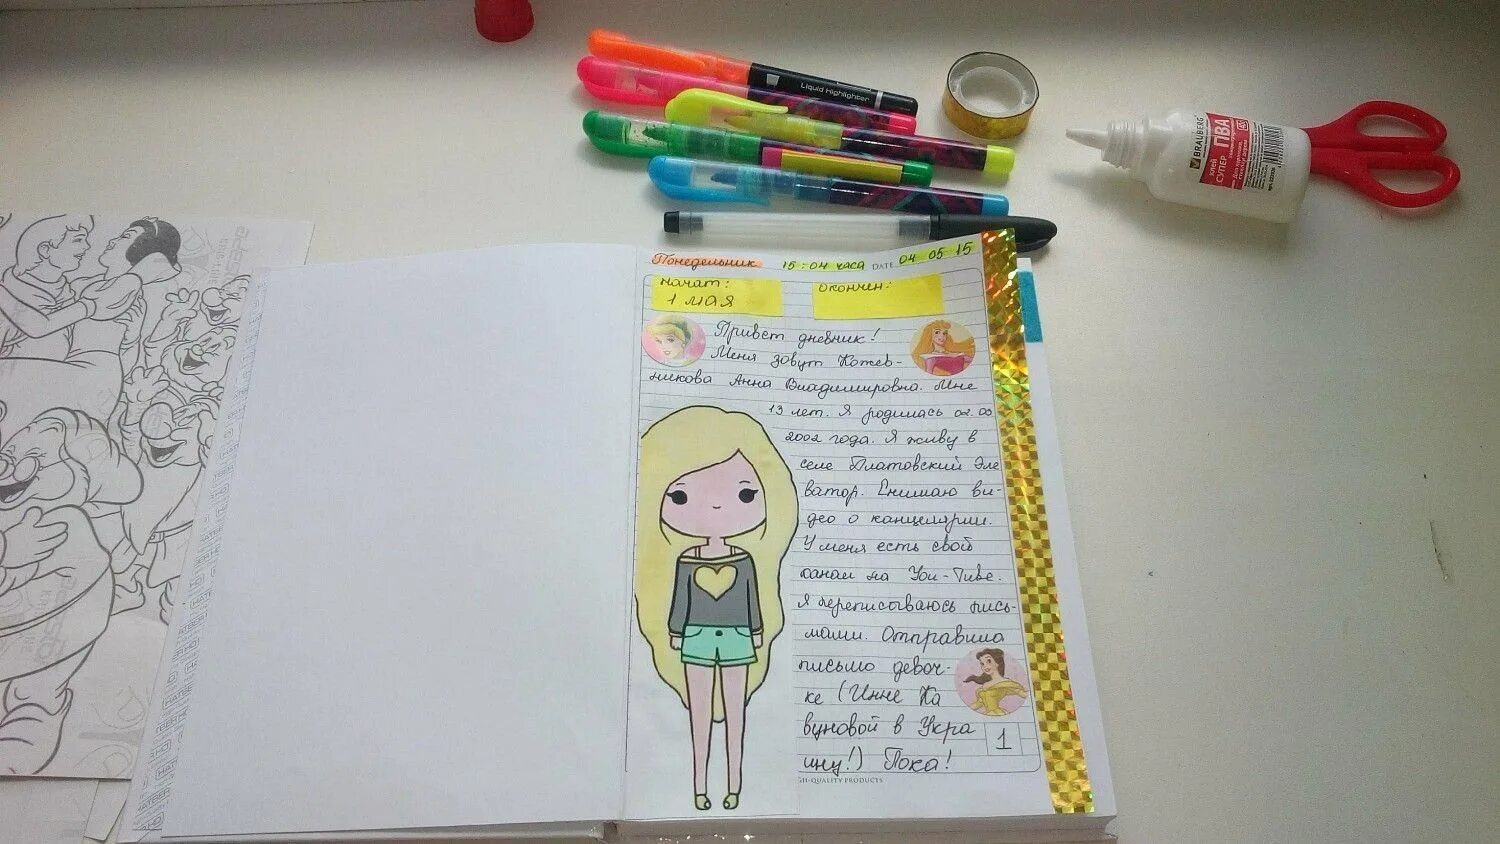 Liquid Highlighter
BRAUBERG
КЛЕЙ
СУПЕР ПВА
Понедельник 15:04 часа DATE 04 05 15
начат:
1 мая
окончен:
Привет дневник!
Меня зовут Кожев-
никова Анна Владимировна. Мне
13 лет. Я родилась 02.
2002 года. Я живу в
селе Платовский Эле
ватор. Снимаю ви-
део о канцелярии.
У меня есть свой
канал на You-Tube.
Я переписываюсь пись-
мами. Отправила
письмо девоч-
ке (Инне Ка
вуновой в Укра
ину!) Пока!
1
GH-QUALITY PRODUCTS